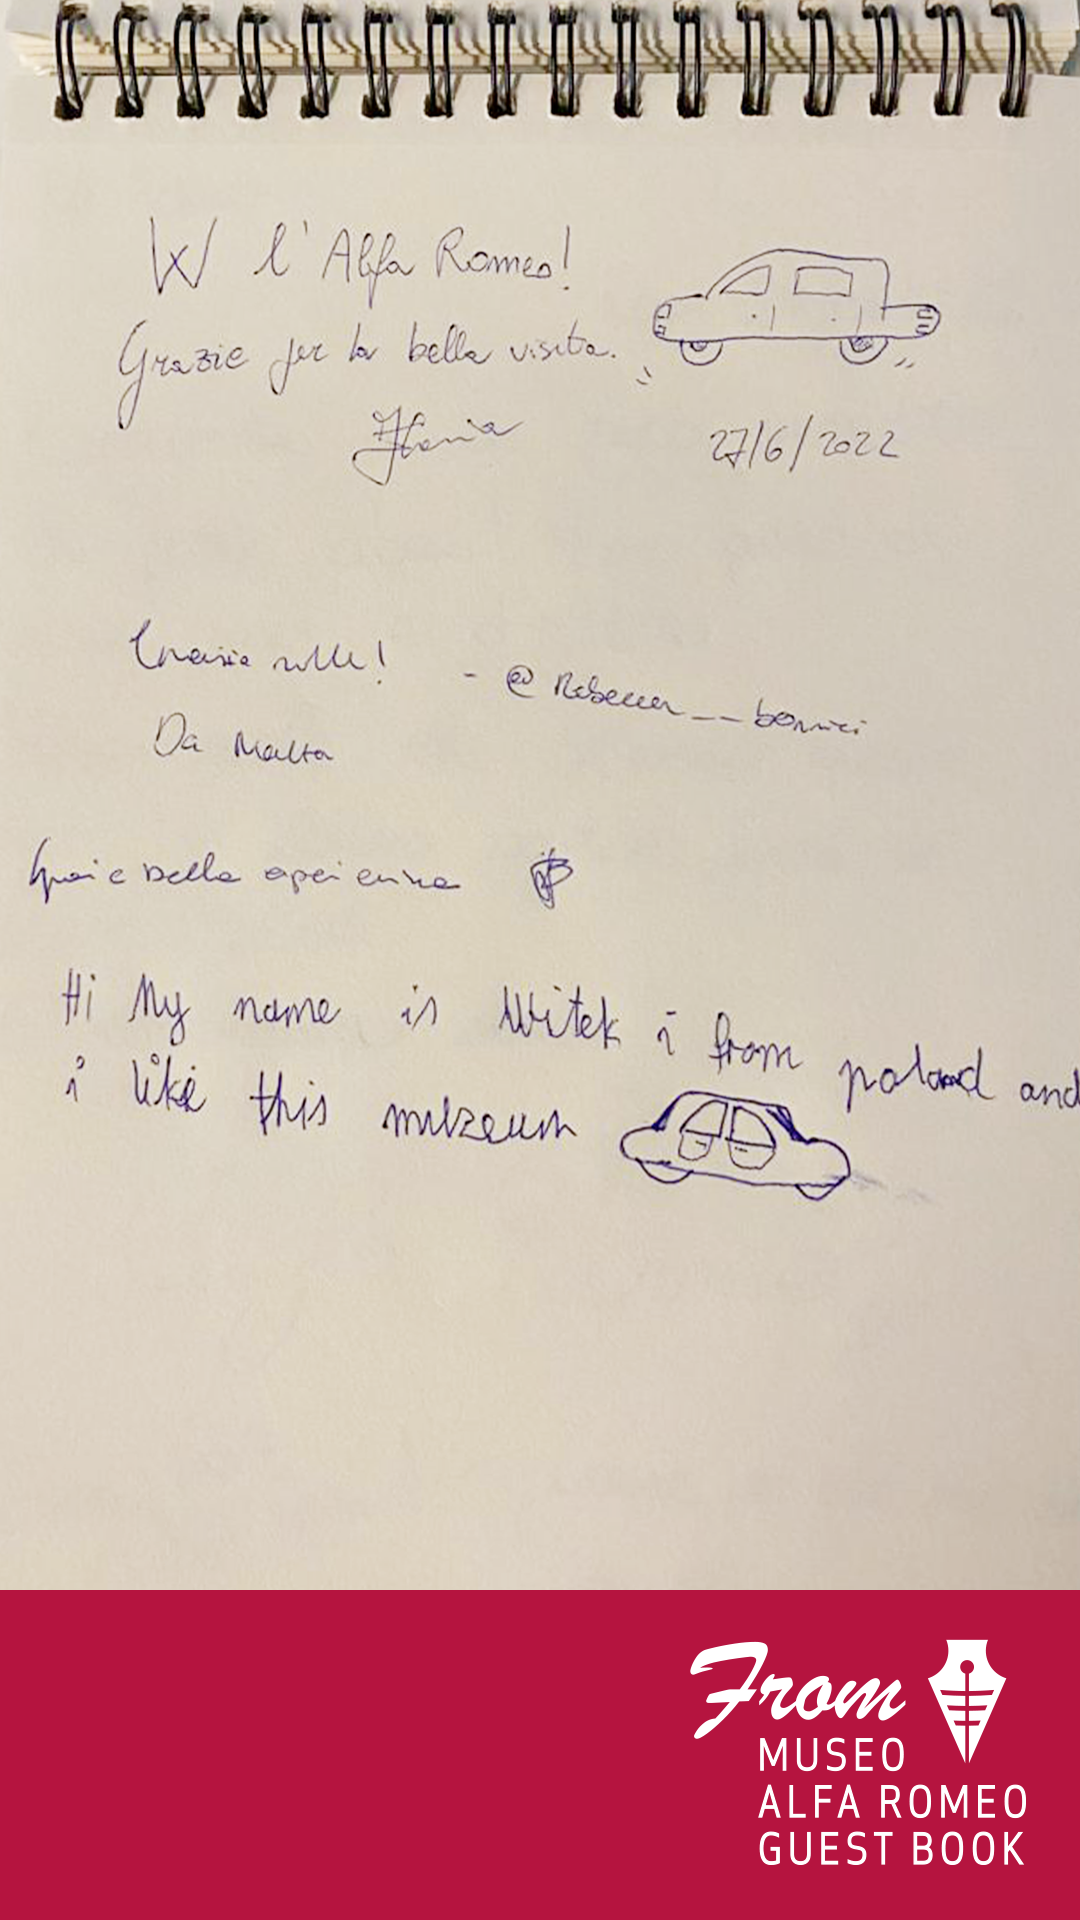 W l'Alfa Romeo!
Grazie per la bella visita.
Ilania
27/6/2022
Grazie mille!
- @Rebecca__bonnici
Da Malta
Grazie bella
Hi My name is Witek i from poland and
i like this muzeum
From
MUSEO
ALFA ROMEO
GUEST BOOK